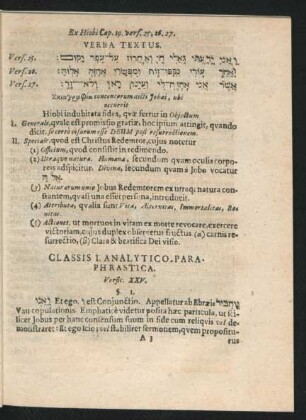 Ex Hiobi Cap. 19. vers. 25. 26. 27.
VERBA TEXTUS.
Vers. 25. וַאֲנִי יָדַעְתִּי גֹּאֲלִי חָי וְאַחֲרוֹן עַל־עָפָר יָקוּם׃
Vers. 26. וְאַחַר עוֹרִי נִקְּפוּ־זֹאת וּמִבְּשָׂרִי אֶחֱזֶה אֱלוֹהַּ׃
Vers. 27. אֲשֶׁר אֲנִי אֶחֱזֶה־לִּי וְעֵינַי רָאוּ וְלֹא־זָר
concentorum
occurrit
Hiobi indubitata fides, quæ fertur in Objectum
I. Generale, quale est promissio gratiæ, hoc ipsum attingit, quando
dicit, se certo visurum esse DEUM post resurrectionem.
II. Speciale, quod est Christus Redemtor, cujus notetur
(1) Officium, quod consistit in redimendo.
(2) Utraque natura. Humana, secundum quam oculis corpo-
reis adspicitur. Divina, secundum quam a Jobo vocatur
(3) Naturarum unio Jobus Redemtorem ex utroq; natura con-
stantem, quasi una esset persona, introducit.
(4) Attributa, qualia sunt Vita, Æternitas, Immortalitas, Bo-
nitas.
(5) Actiones, ut mortuos in vitam ex morte revocare, exercere
victoriam, cujus duplex observetur fructus. (α) carnis re-
surrectio, (β) Clara & beatifica Dei visio.
CLASSIS I. ANALYTICO-PARA-
PHRASTICA.
Versic. XXV.
§. 1.
וַאֲנִי Et ego, ו est Conjunctio. Appellatur ab Ebræis
Vau copulationis. Emphatice videtur posita hæc particula, ut sci-
licet Jobus per hanc consensum suum in fide cum reliquis vel de-
monstraret: & ego scio; vel stabiliret sermonem, quem propositu-
A 3 rus